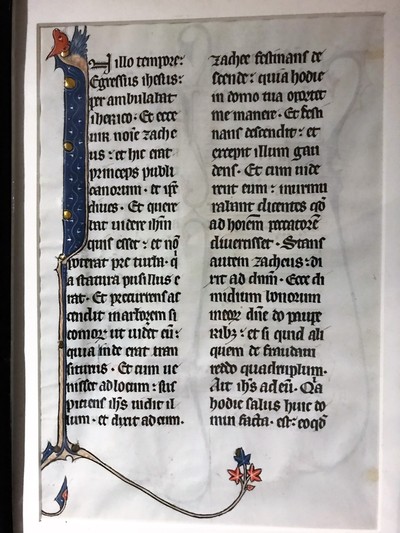 In illo tempore:
Egressus ihesus:
per ambulabat
iherico. Et ecce
uir noīe zache
us: et hic erat
princeps publi
canorum. et ip̄e
diues. Et quere
bat uidere ih̄m
quis esset: et nō
poterat pre turba. q̄
a statura pusillus e
rat. Et precurrens as
cendit arborem si
comor̄. ut uidet eū:
quia inde erat tran
siturus. Et cum ue
nisset ad locum: sus
piciens ih̄s uidit il
lum. et dixit ad eum.
zachee festinans de
scende: quia hodie
in domo tua oportet
me manere. Et festi
nans descendit: et
excepit illum gau
dens. Et cum uide
rent eum: murmu
rabant dicentes qð
ad hoīem peccatorē
diuertisset. Stans
autem zacheus. di
xit ad dn̄m. Ecce di
midium bonorum
meoꝝ dn̄e do paupe
ribꝫ: et si quid ali
quem defraudaui
reddo quadruplum.
Ait ih̄s ad eū. Qia
hodie salus huic do
mui facta. est: eo qð